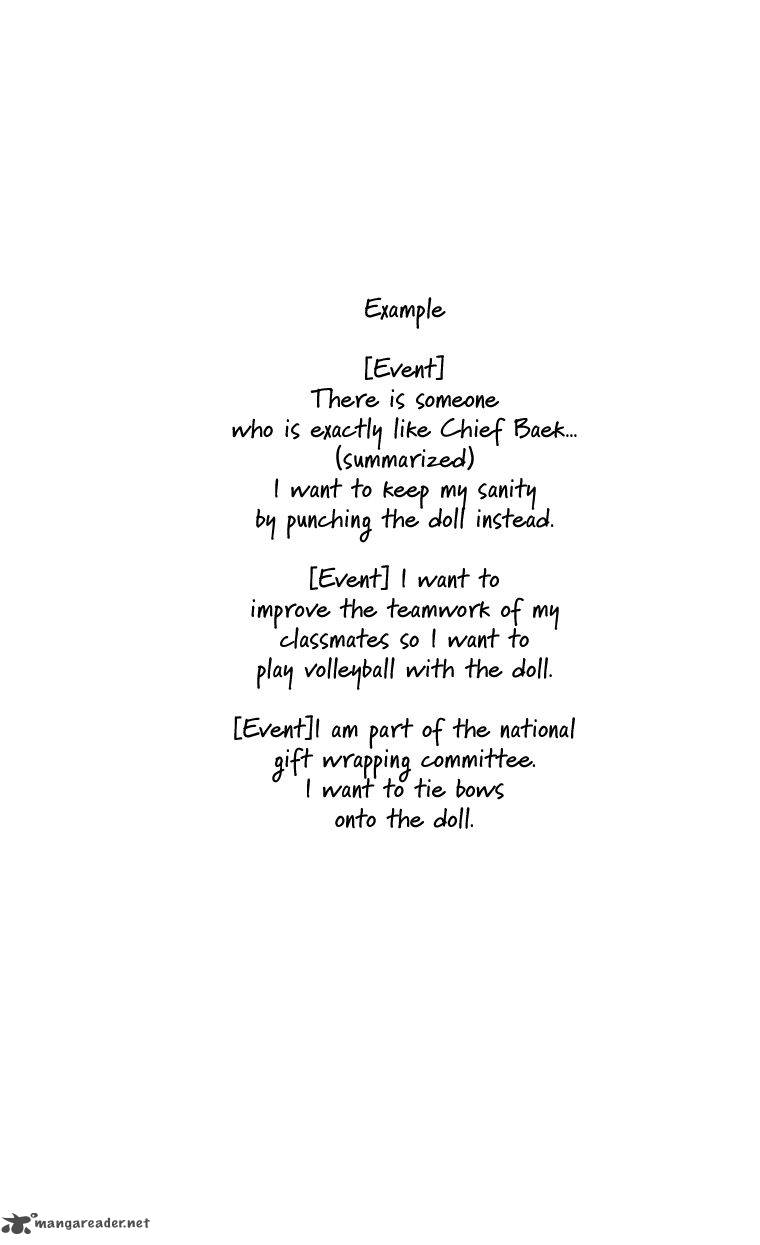 Example
[Event]
There is someone
who is exactly like Chief Baek...
(summarized)
I want to keep my sanity
by punching the doll instead.
[Event] I want to
improve the teamwork of my
classmates so I want to
play volleyball with the doll.
[Event]I am part of the national
gift wrapping committee.
I want to tie bows
onto the doll.
mangareader.net